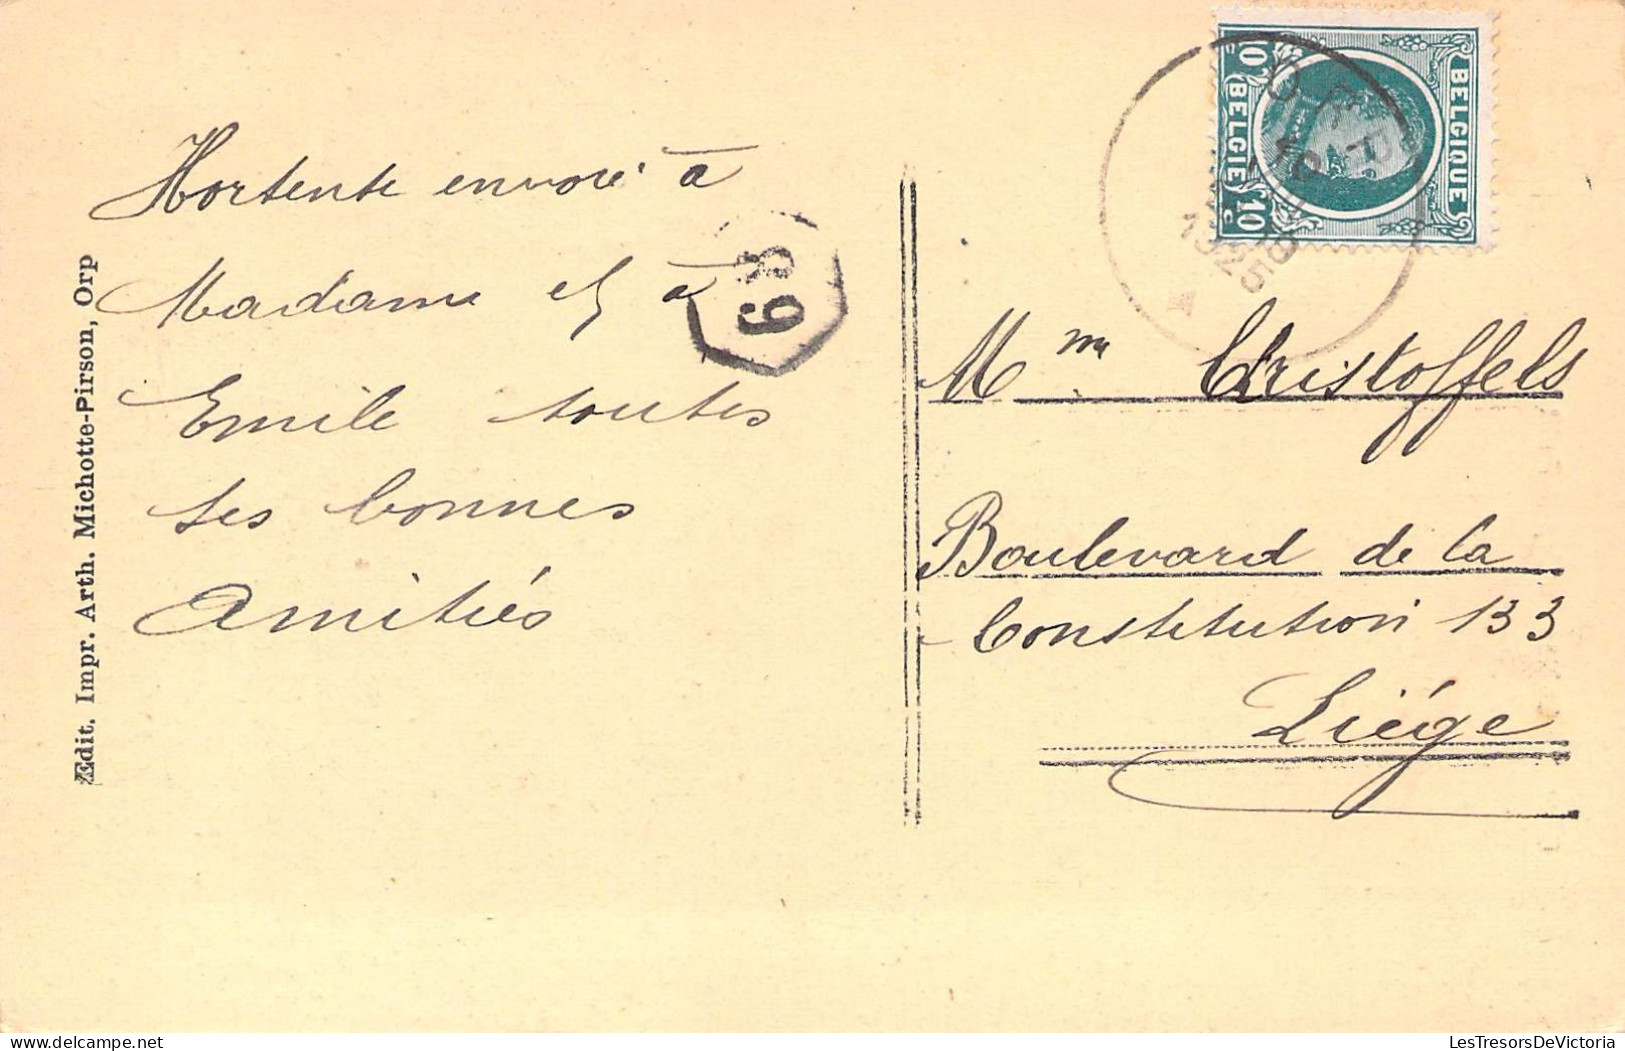 Hortente envoié à
Madame et à
Emile toutes
ses bonnes
Amitiés
68
Edit. Impr. Arth. Michotte-Pirson, Orp
BELGIQUE
BELGIE
10 c
10 c
ORP
16
1925
Mme Christoffels
Boulevard de la
Constitution 133
Liége
LesTresorsDeVictoria.com